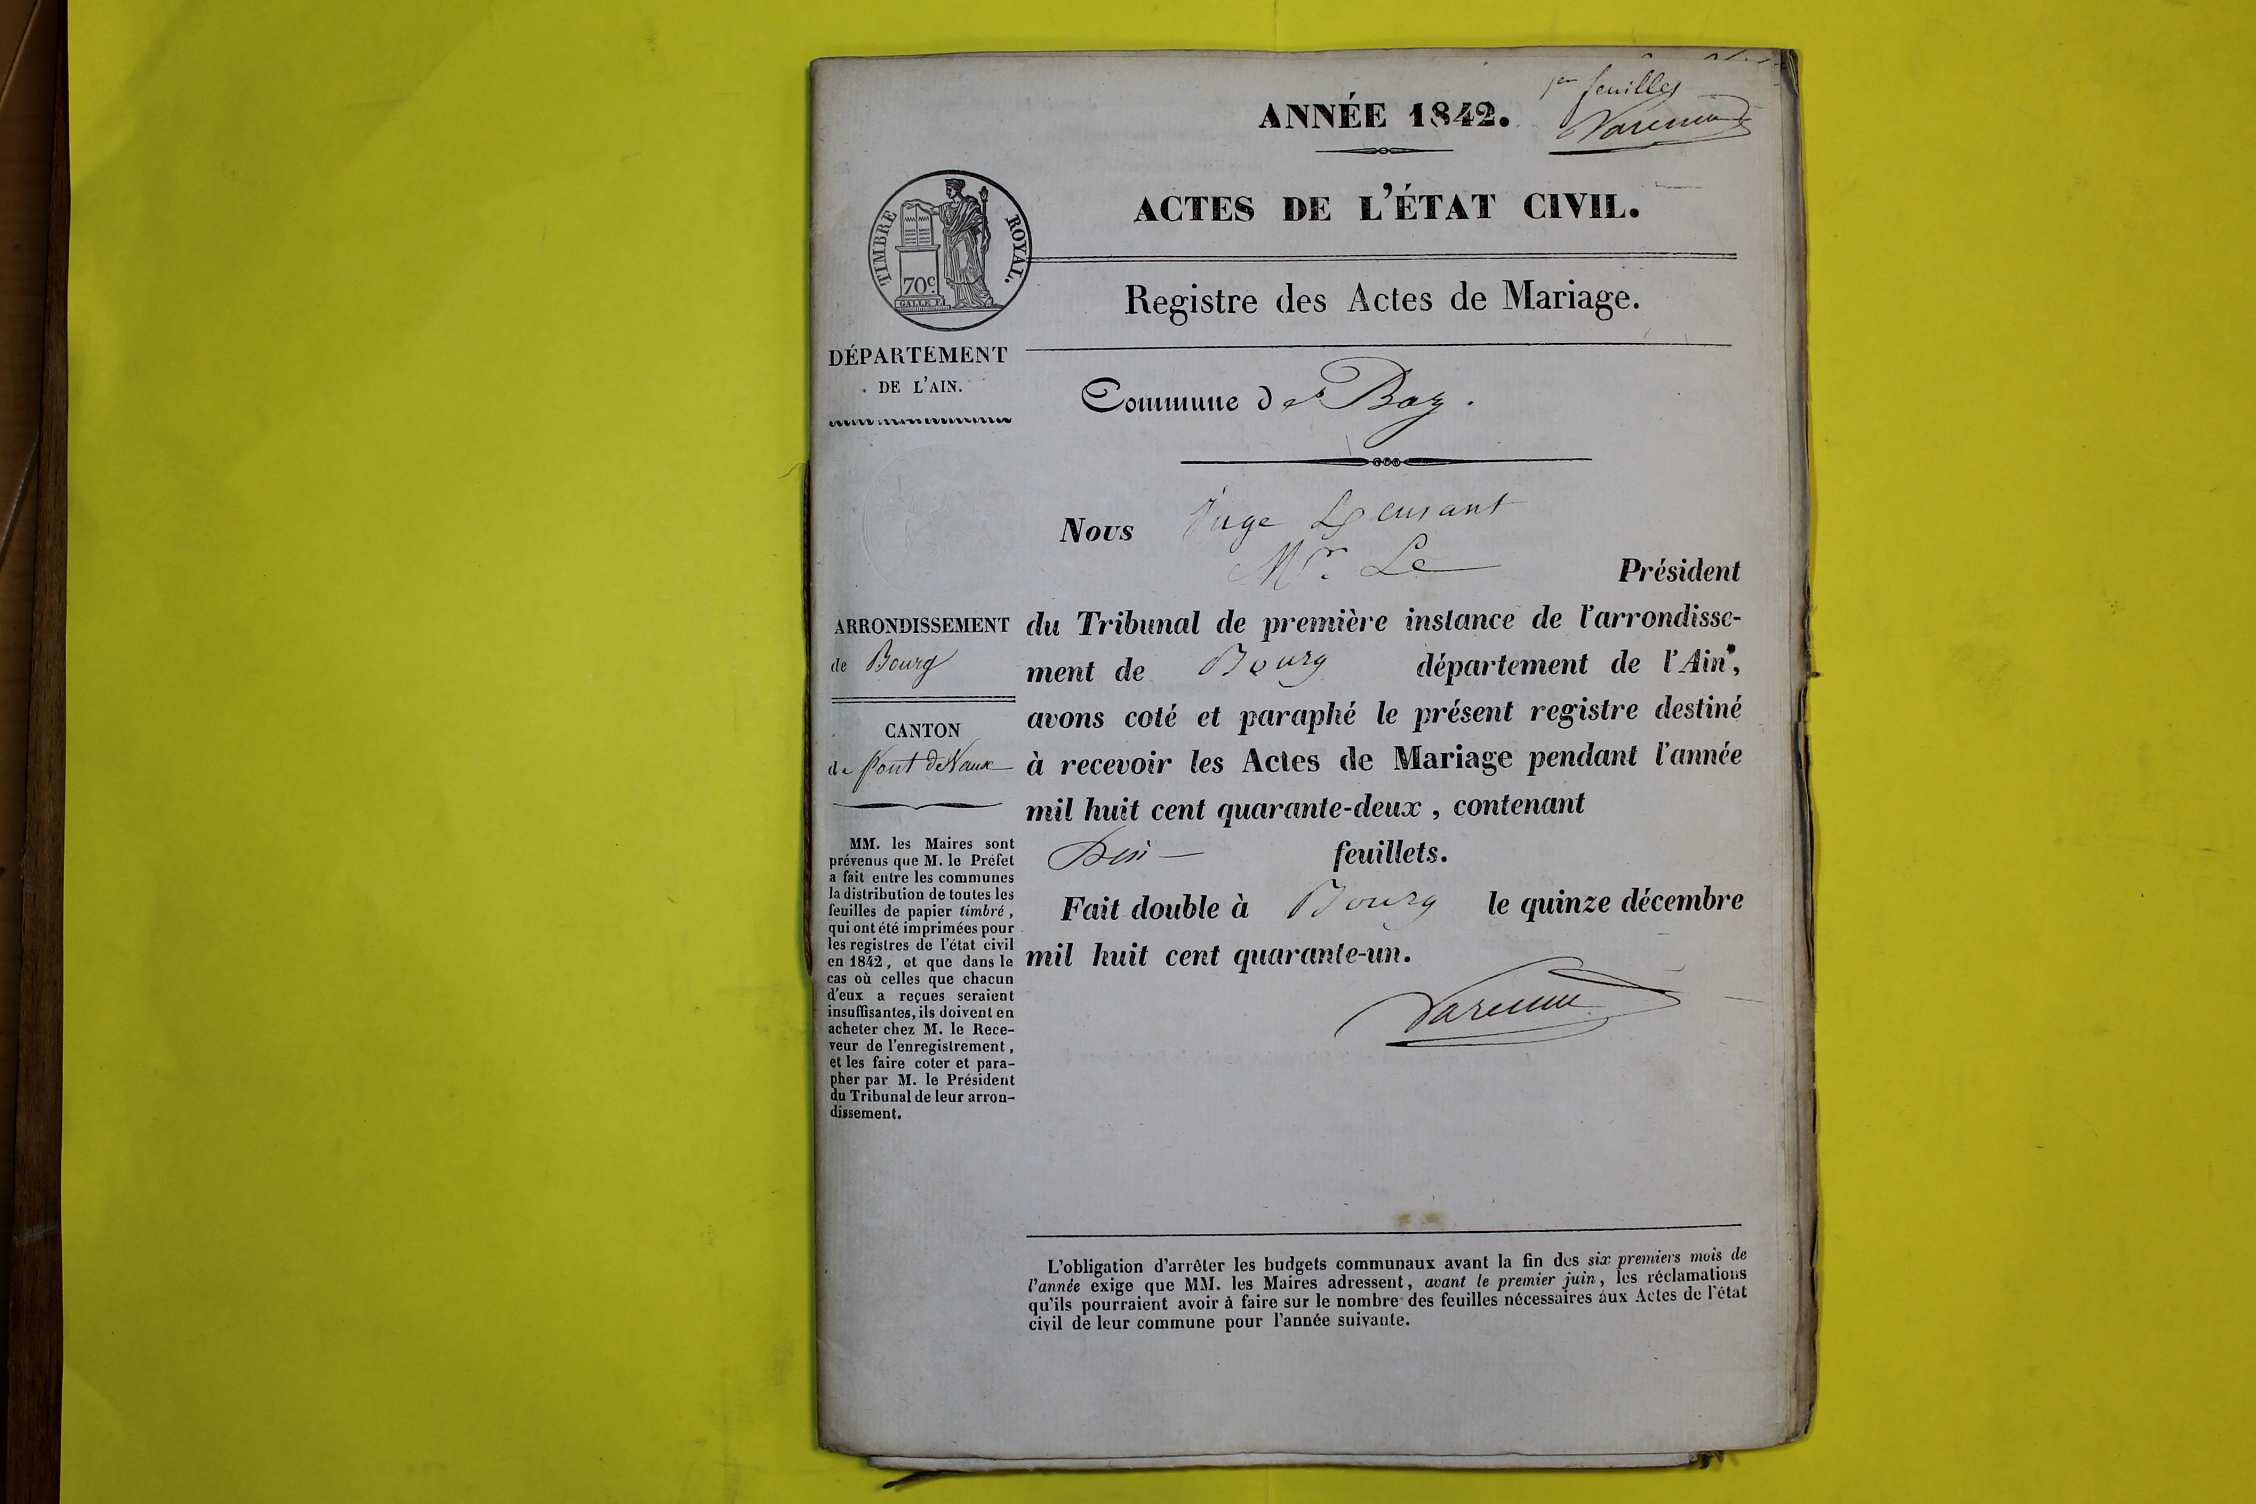 1er feuillet
ANNÉE 1842.
Varenne
ACTES DE L'ÉTAT CIVIL.
TIMBRE ROYAL.
70c
GALLE F.
Registre des Actes de Mariage.
DÉPARTEMENT
DE L'AIN.
Commune de Boz.
Nous Juge
Mr. Le Président
ARRONDISSEMENT
de Bourg
CANTON
de Pont de Vaux
MM. les Maires sont
prévenus que M. le Préfet
a fait entre les communes
la distribution de toutes les
feuilles de papier timbré,
qui ont été imprimées pour
les registres de l'état civil
en 1842, et que dans le
cas où celles que chacun
d'eux a reçues seraient
insuffisantes, ils doivent en
acheter chez M. le Rece-
veur de l'enregistrement,
et les faire coter et para-
pher par M. le Président
du Tribunal de leur arron-
dissement.
du Tribunal de première instance de l'arrondisse-
ment de Bourg département de l'Ain,
avons coté et paraphé le présent registre destiné
à recevoir les Actes de Mariage pendant l'année
mil huit cent quarante-deux, contenant
feuillets.
Fait double à Bourg le quinze décembre
mil huit cent quarante-un.
Varenne
L'obligation d'arrêter les budgets communaux avant la fin des six premiers mois de
l'année exige que MM. les Maires adressent, avant le premier juin, les réclamations
qu'ils pourraient avoir à faire sur le nombre des feuilles nécessaires aux Actes de l'état
civil de leur commune pour l'année suivante.